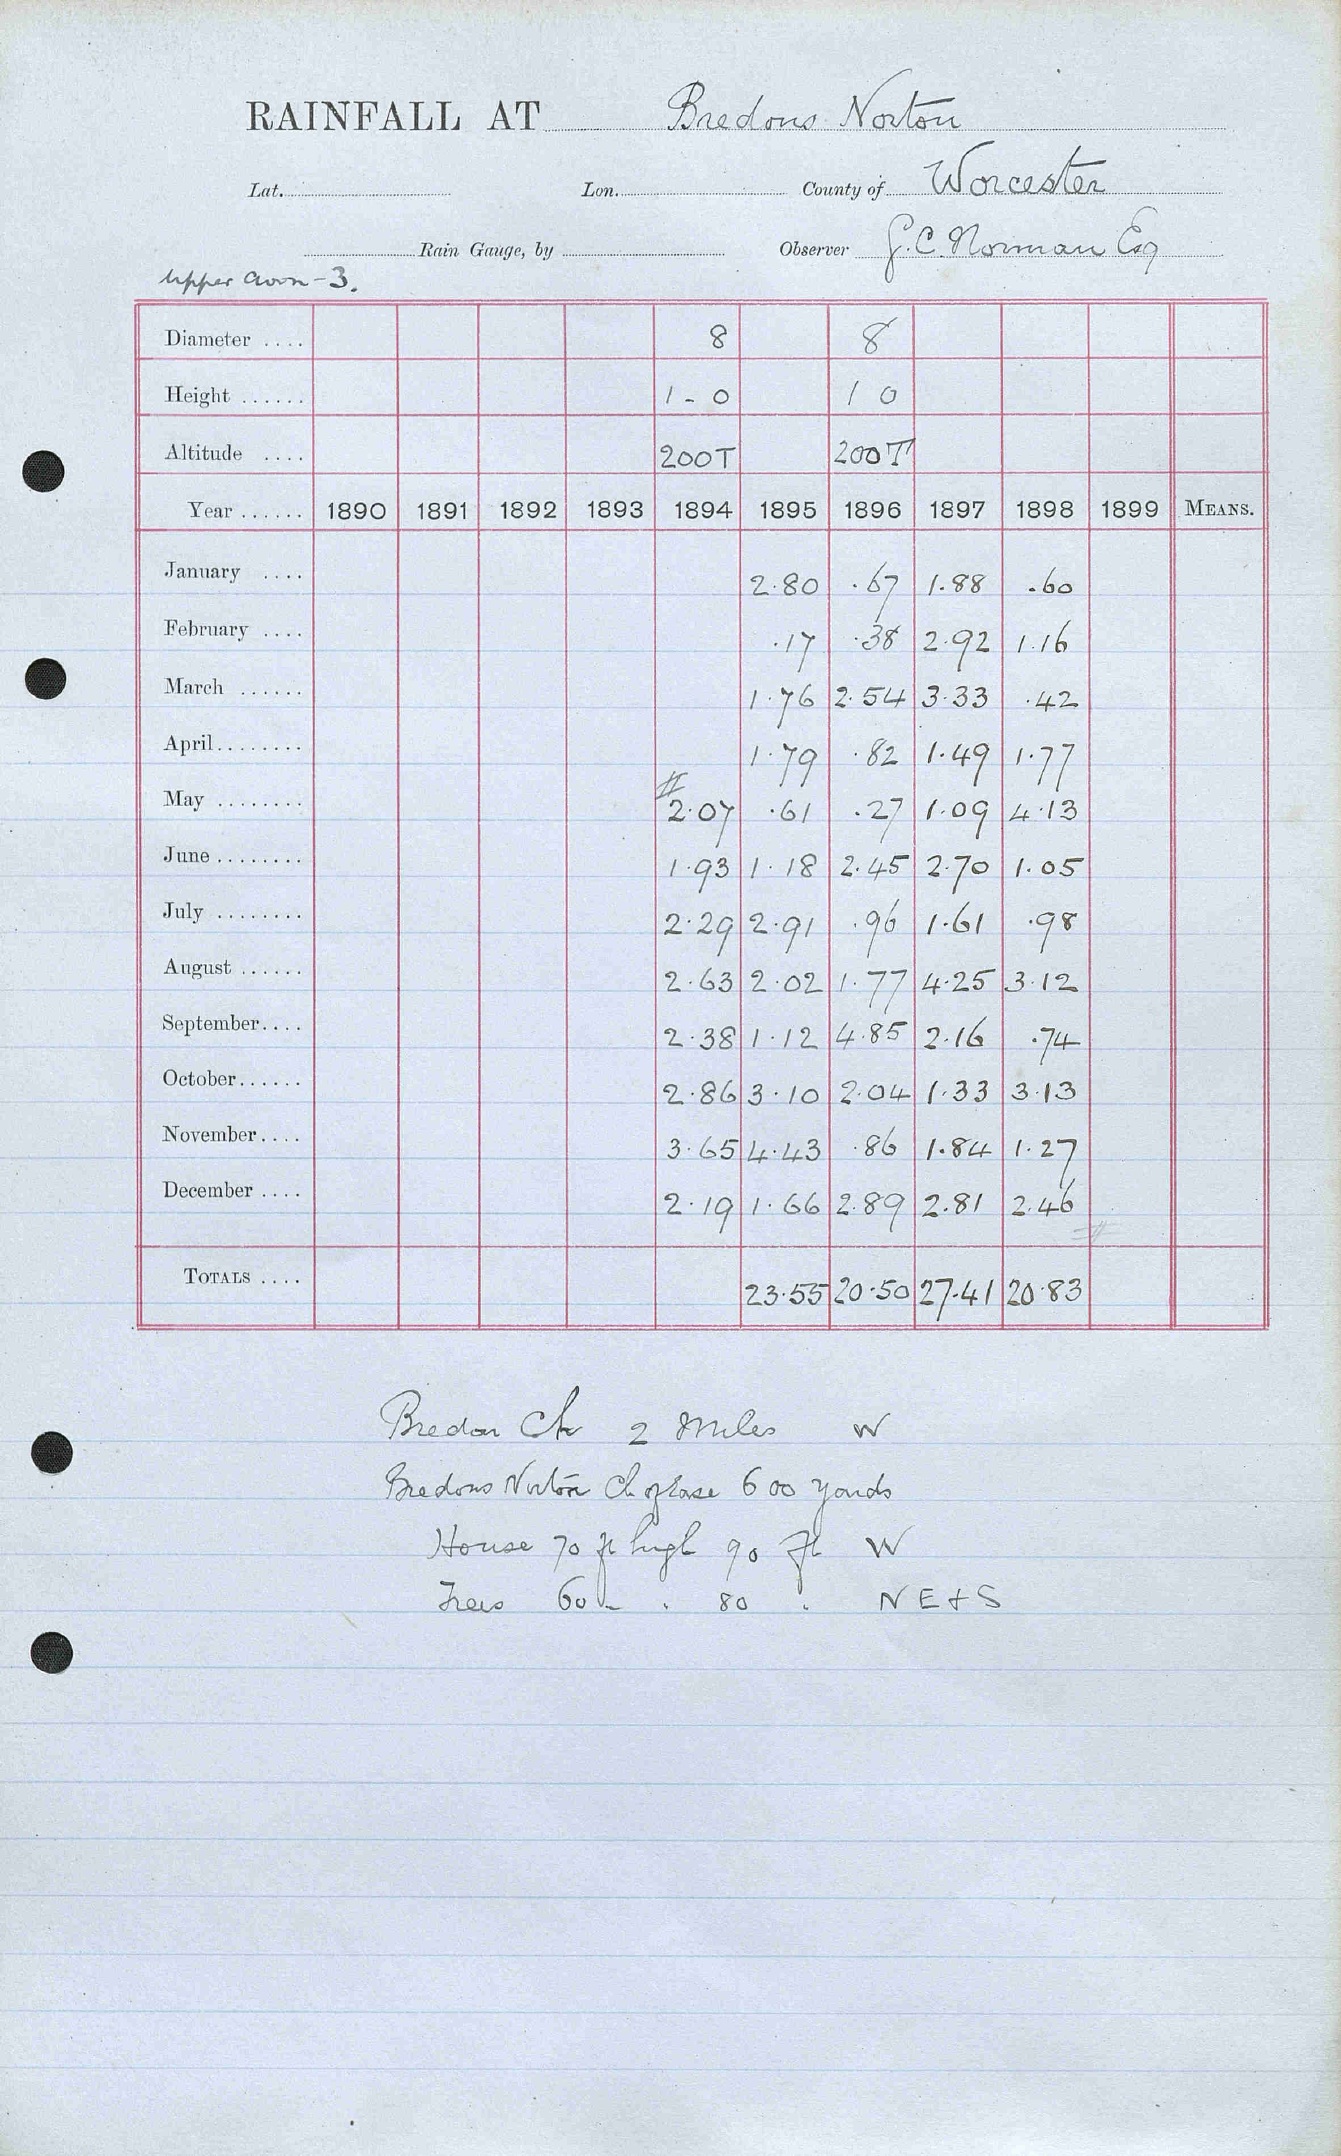 RAINFALL AT Bredons Norton
Lat. Lon. County of Worcester
Rain Gauge, by Observer G.C. Norman Esq
Upper Avon - 3.
Diameter .... 8 8
Height ...... 1 - 0 1 0
Altitude .... 200T 200T
Year ...... 1890 1891 1892 1893 1894 1895 1896 1897 1898 1899 MEANS.
January .... 2.80 .67 1.88 .60
February .... .17 .38 2.92 1.16
March ...... 1.76 2.54 3.33 .42
April ........ 1.79 .82 1.49 1.77
May ........ 2.07 .61 .27 1.09 4.13
June ........ 1.93 1.18 2.45 2.70 1.05
July ........ 2.29 2.91 .96 1.61 .98
August ...... 2.63 2.02 1.77 4.25 3.12
September .... 2.38 1.12 4.85 2.16 .74
October ...... 2.86 3.10 2.04 1.33 3.13
November .... 3.65 4.43 .86 1.84 1.27
December .... 2.19 1.66 2.89 2.81 2.46
TOTALS .... 23.55 20.50 27.41 20.83
Bredon Ch 2 Miles W
Bredons Norton Ch of Ease 600 yards
House 70 ft high 90 ft W
Trees 60 - . 80 . N E + S